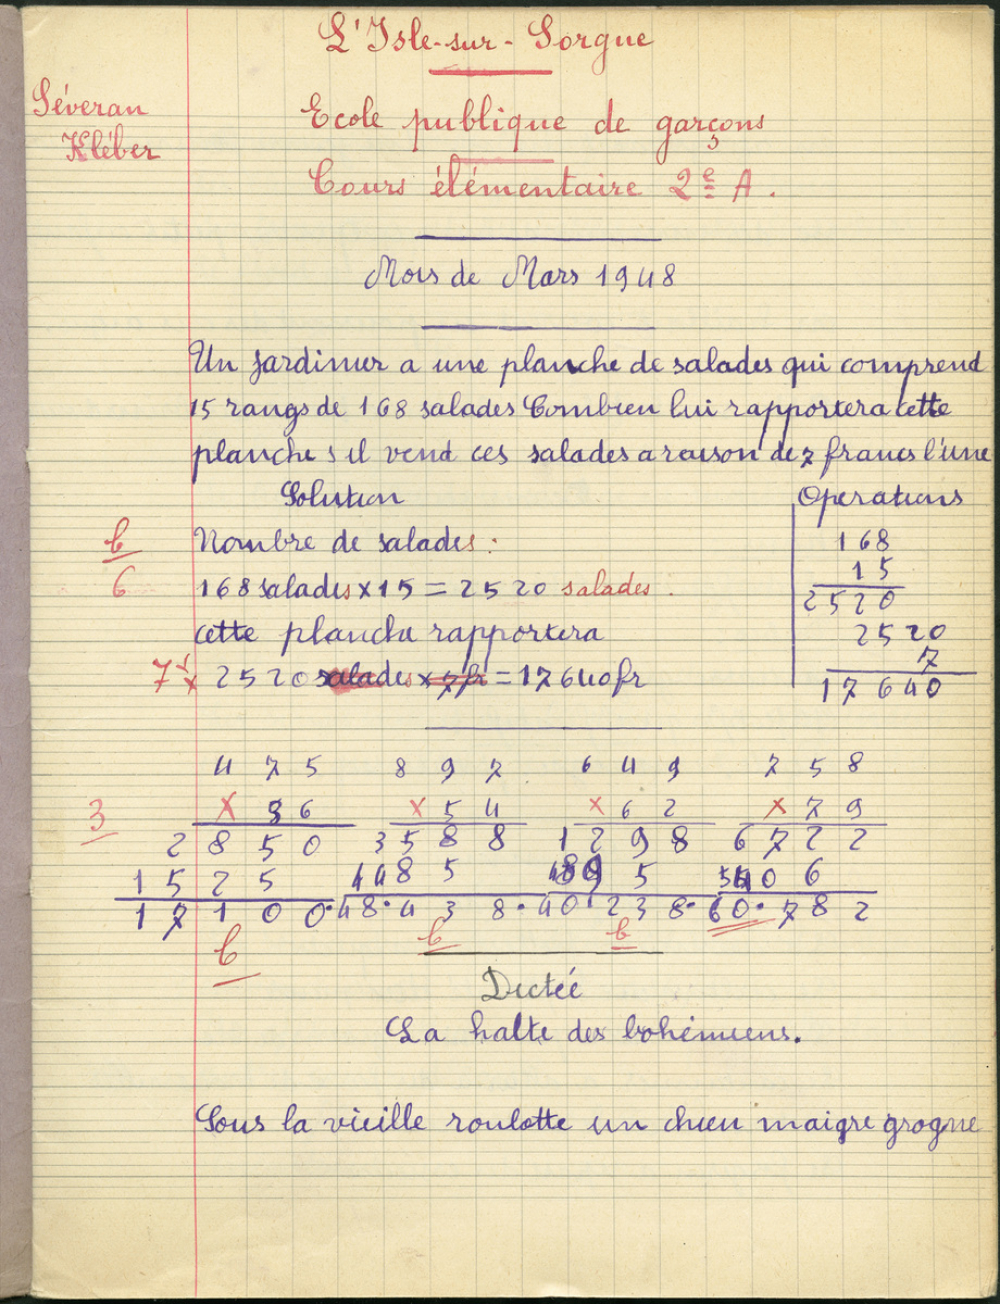 L'Isle-sur-Sorgue
Séveran
Kléber
Ecole publique de garçons
Cours élémentaire 2e A.
Mois de Mars 1948
Un jardinier a une planche de salades qui comprend
15 rangs de 168 salades Combien lui rapportera cette
planche s il vend ces salades a raison de 7 francs l'une
Solution Operations
b
6
Nombre de salades :
168 salades x 15 = 2520 salades.
cette plancha rapportera
7f x 2520 salades x 7fr = 17640fr
168
15
2520
2520
7
17640
3
475 897 649 758
x 36 x 54 x 62 x 79
2850 3588 1298 6722
1525 4485 5 06
17100. 48.438. 40.238. 60.782
b b b
Dictée
La halte des bohémiens.
Sous la vieille roulotte un chien maigre grogne